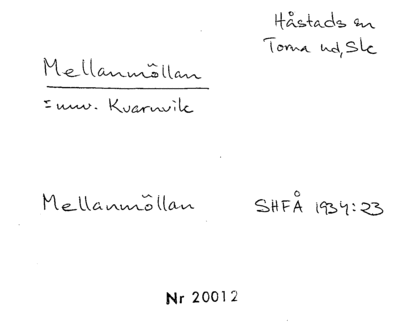 Håstads sn
Torna hd, Sk
Mellanmöllan
= nuv. Kvarnvik
Mellanmöllan SHFÅ 1934:23
Nr 20012